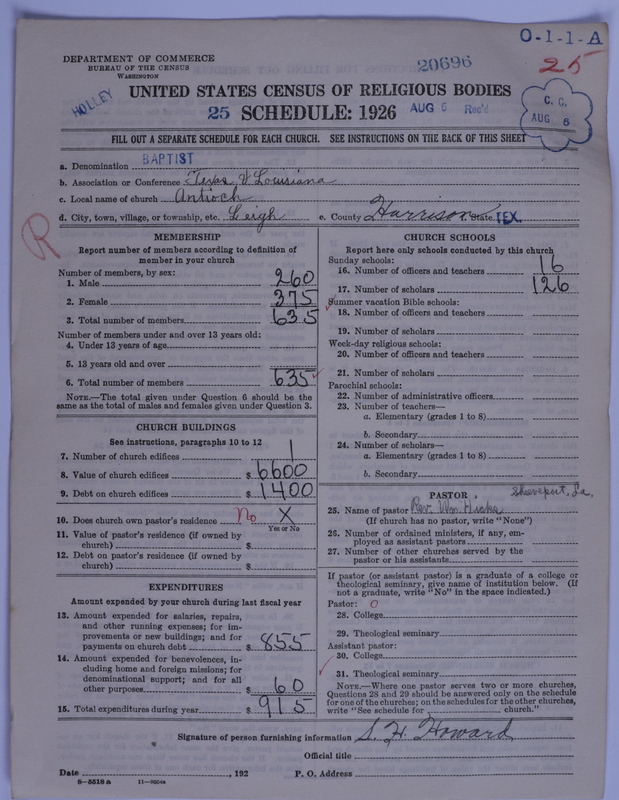 DEPARTMENT OF COMMERCE
BUREAU OF THE CENSUS
WASHINGTON
20696
O-1-1-A
25
HOLLEY
UNITED STATES CENSUS OF RELIGIOUS BODIES
25 SCHEDULE: 1926 AUG 6 Rec'd
C. C.
AUG 6
FILL OUT A SEPARATE SCHEDULE FOR EACH CHURCH. SEE INSTRUCTIONS ON THE BACK OF THIS SHEET
a. Denomination BAPTIST
b. Association or Conference Texas & Louisiana
c. Local name of church Antioch
d. City, town, village, or township, etc. Leigh e. County Harrison f. State TEX.
R
MEMBERSHIP
Report number of members according to definition of
member in your church
Number of members, by sex:
1. Male 260
2. Female 375
3. Total number of members 635
Number of members under and over 13 years old:
4. Under 13 years of age
5. 13 years old and over
6. Total number of members 635
NOTE.—The total given under Question 6 should be the
same as the total of males and females given under Question 3.
CHURCH BUILDINGS
See instructions, paragraphs 10 to 12
7. Number of church edifices 1
8. Value of church edifices $ 6600
9. Debt on church edifices $ 1400
10. Does church own pastor's residence No X
Yes or No
11. Value of pastor's residence (if owned by
church) $
12. Debt on pastor's residence (if owned by
church) $
EXPENDITURES
Amount expended by your church during last fiscal year
13. Amount expended for salaries, repairs,
and other running expenses; for im-
provements or new buildings; and for
payments on church debt $ 855
14. Amount expended for benevolences, in-
cluding home and foreign missions; for
denominational support; and for all
other purposes $ 60
15. Total expenditures during year $ 915
CHURCH SCHOOLS
Report here only schools conducted by this church
Sunday schools:
16. Number of officers and teachers 16
17. Number of scholars 126
Summer vacation Bible schools:
18. Number of officers and teachers
19. Number of scholars
Week-day religious schools:
20. Number of officers and teachers
21. Number of scholars
Parochial schools:
22. Number of administrative officers
23. Number of teachers—
a. Elementary (grades 1 to 8)
b. Secondary
24. Number of scholars—
a. Elementary (grades 1 to 8)
b. Secondary
PASTOR Shreveport, La.
25. Name of pastor Rev. Wm. Hicks
(If church has no pastor, write "None")
26. Number of ordained ministers, if any, em-
ployed as assistant pastors
27. Number of other churches served by the
pastor or his assistants
If pastor (or assistant pastor) is a graduate of a college or
theological seminary, give name of institution below. (If
not a graduate, write "No" in the space indicated.)
Pastor: O
28. College
29. Theological seminary
Assistant pastor:
30. College
31. Theological seminary
NOTE.—Where one pastor serves two or more churches,
Questions 28 and 29 should be answered only on the schedule
for one of the churches; on the schedules for the other churches,
write "See schedule for church."
Signature of person furnishing information S. H. Howard
Official title
Date , 192 P. O. Address
8—5518 a